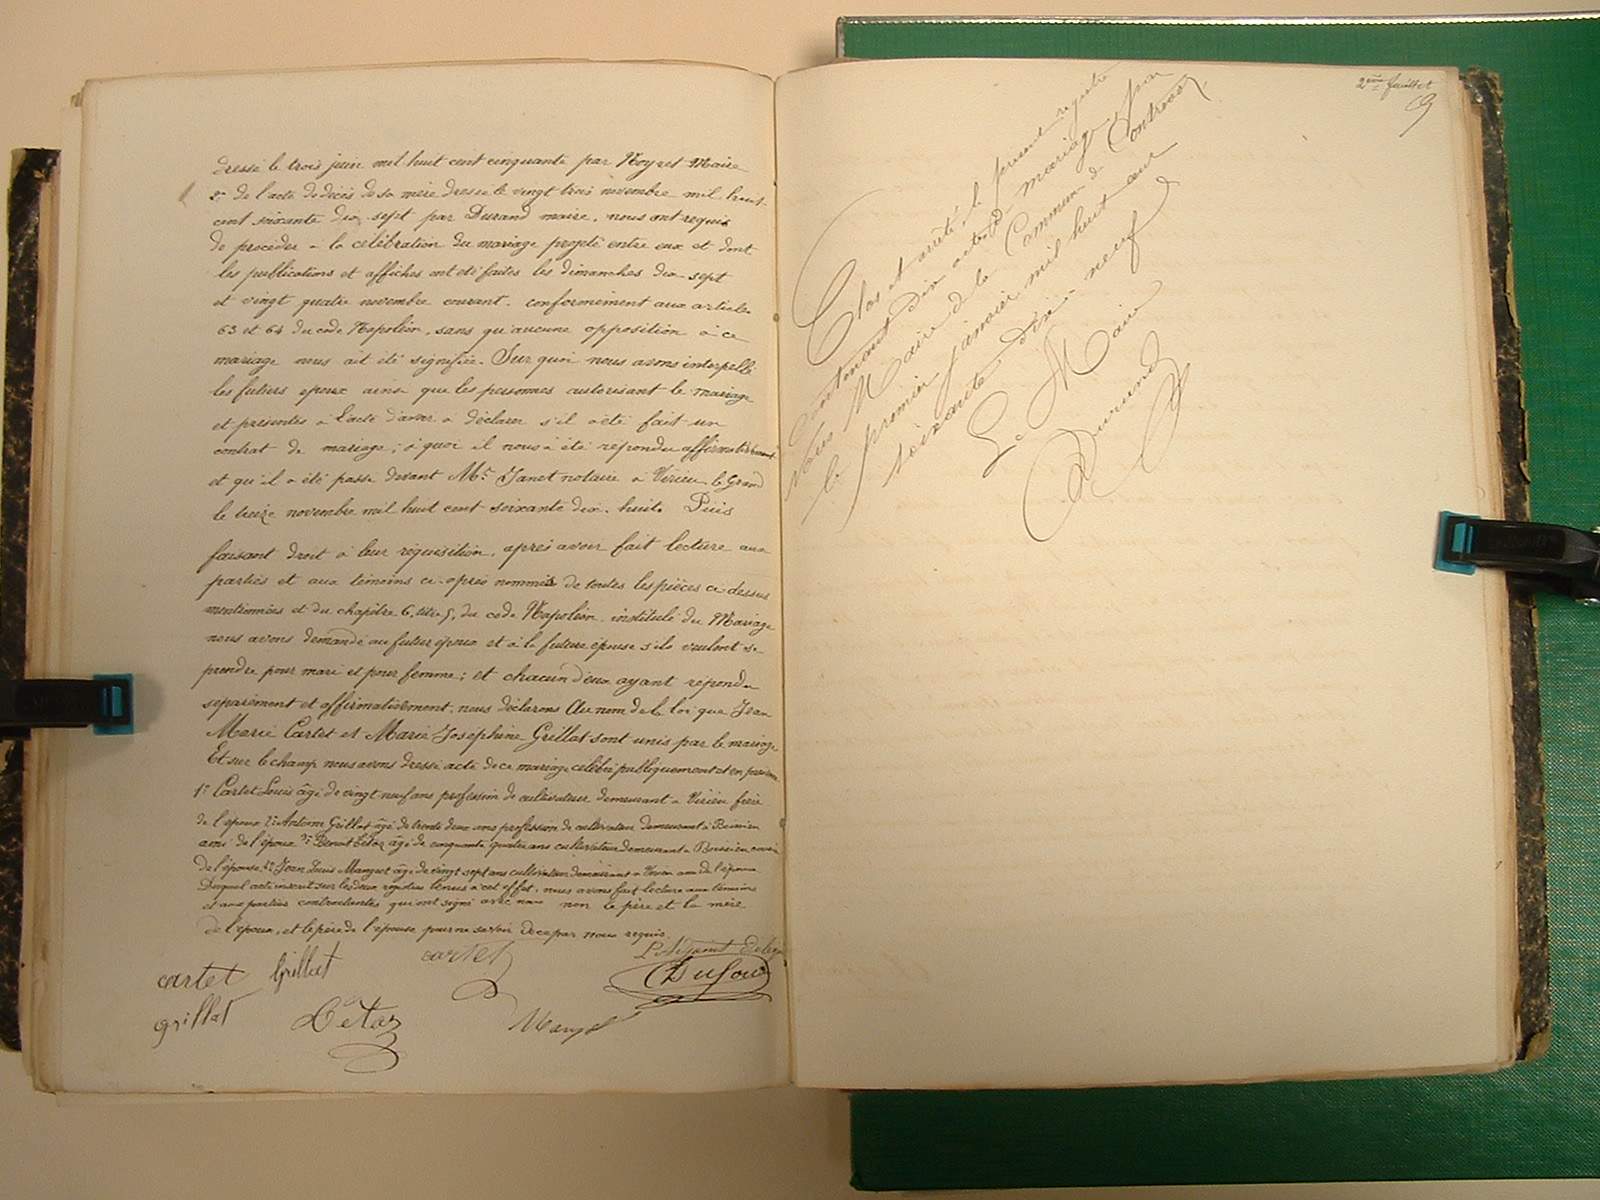 dressé le trois juin mil huit cent cinquante par Noyret Maire
2° de l'acte de décès de sa mère dressé le vingt trois novembre mil huit-
cent soixante dix-sept par Durand maire, nous ont requis
de procéder à la célébration du mariage projeté entre eux et dont
les publications et affiches ont été faites les dimanches dix-sept
et vingt quatre novembre courant conformément aux articles
63 et 64 du code Napoléon, sans qu'aucune opposition à ce
mariage nous ait été signifiée. Sur quoi nous avons interpellé
les futurs époux ainsi que les personnes autorisant le mariage
et présentes à l'acte d'avoir à déclarer s'il a été fait un
contrat de mariage; à quoi il nous a été répondu affirmativement
et qu'il a été passé devant Me Janet notaire à Virieu le Grand
le treize novembre mil huit cent soixante dix-huit. Puis
faisant droit à leur réquisition, après avoir fait lecture aux
parties et aux témoins ci-après nommés de toutes les pièces ci-dessus
mentionnées et du chapitre 6, titre 5, du code Napoléon intitulé du Mariage
nous avons demandé au futur époux et à la future épouse s'ils veulent se
prendre pour mari et pour femme; et chacun d'eux ayant répondu
séparément et affirmativement, nous déclarons Au nom de la loi que Jean
Marie Cartet et Marie Josephine Grillat sont unis par le mariage
Et sur le champ nous avons dressé acte de ce mariage célébré publiquement et en présence
1° Cartet Louis âgé de vingt neuf ans profession de cultivateur demeurant à Virieu frère
de l'époux 2° Antoine Grillat âgé de trente deux ans profession de cultivateur demeurant à
ami de l'époux 3° Benoit Cétaz âgé de cinquante quatre ans cultivateur demeurant à cousin
de l'épouse 4° Jean Louis âgé de vingt sept ans cultivateur demeurant à Virieu ami de l'époux
Duquel acte inscrit sur les deux registres tenus à cet effet, nous avons fait lecture aux témoins
et aux parties contractantes qui ont signé avec nous non le père et la mère
de l'époux, et le père de l'épouse pour ne savoir de ce par nous requis.
L'Adjoint
cartet Grillat cartet Dufour
grillat Cétaz
2ème feuillet
Clos et arrêté le présent registre
contenant dix actes de mariage par
Nous Maire de la Commune de Contrevoz
le premier janvier mil huit cent
soixante dix-neuf
Le Maire
Durand